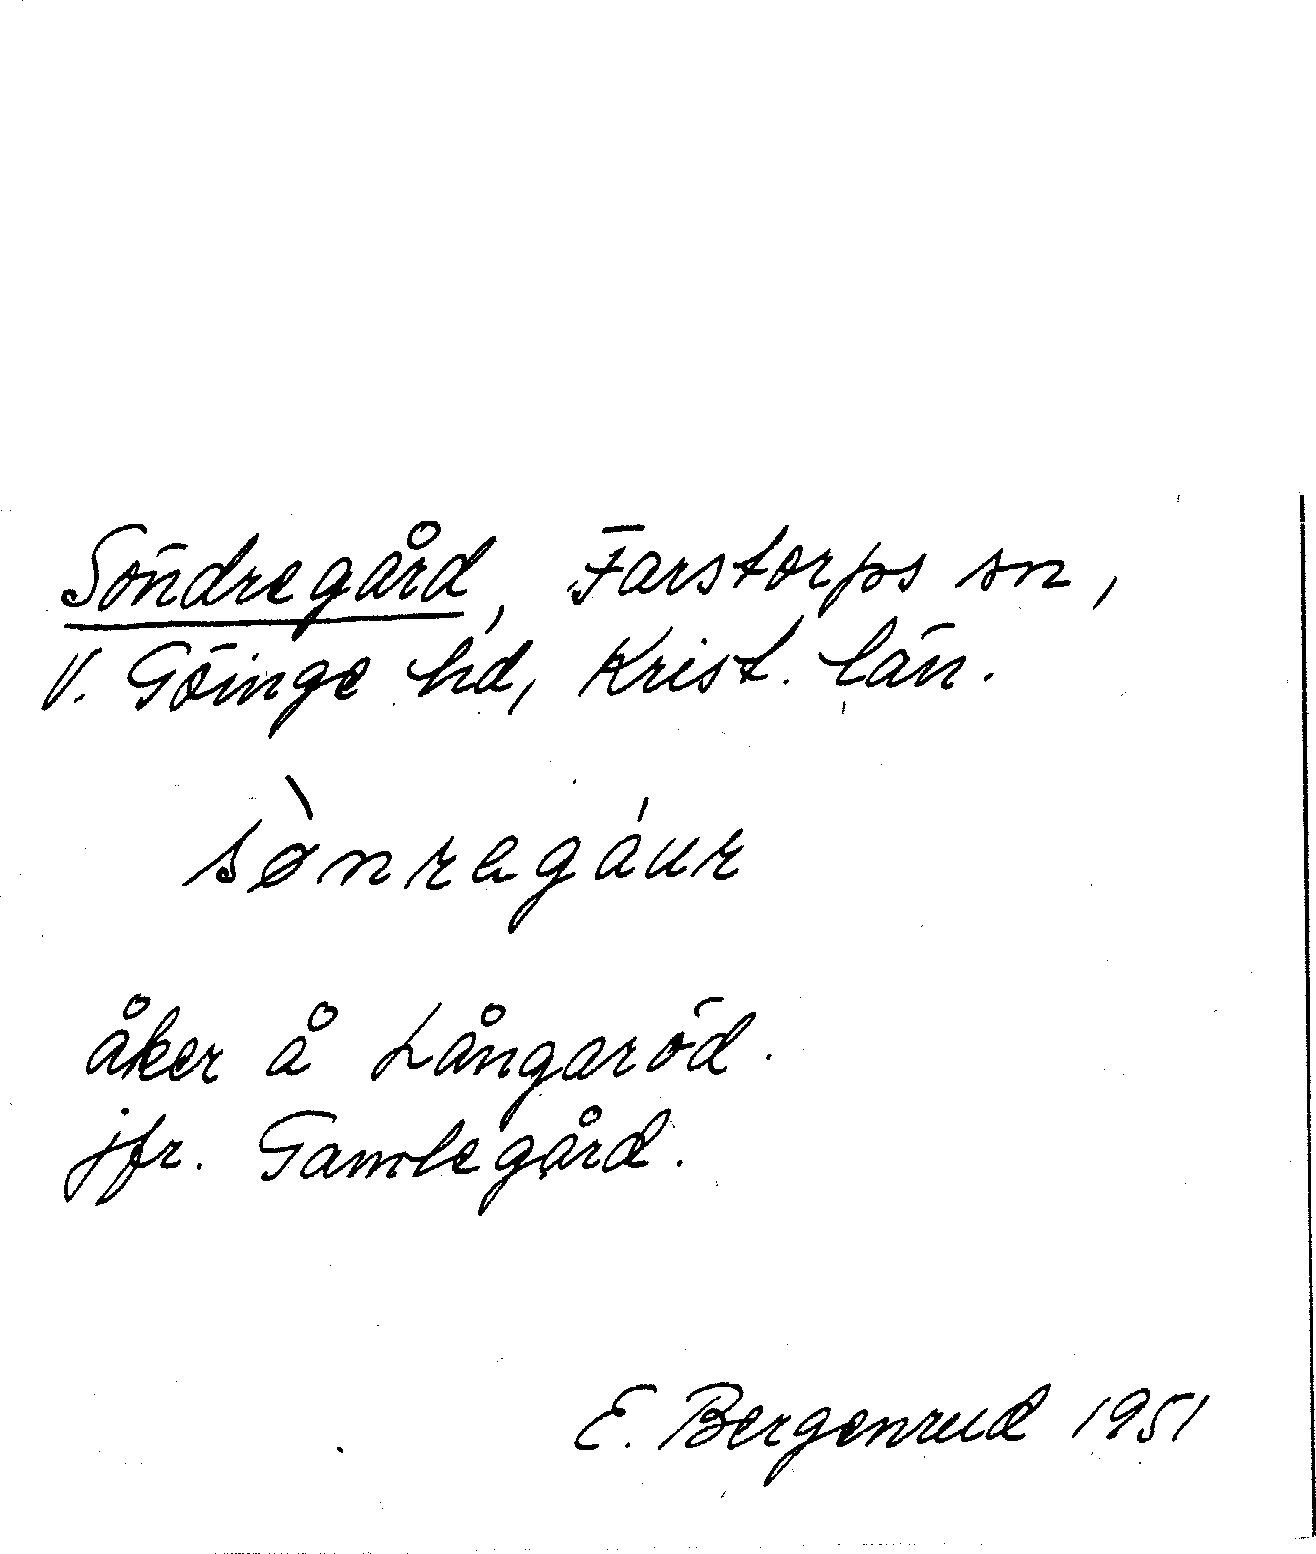 Söndregård, Farstorps sn,
V. Göinge hd, Krist. län.
sø̀nragáur
åker å Långaröd.
jfr. Gamlegård.
E. Bergenrud 1951